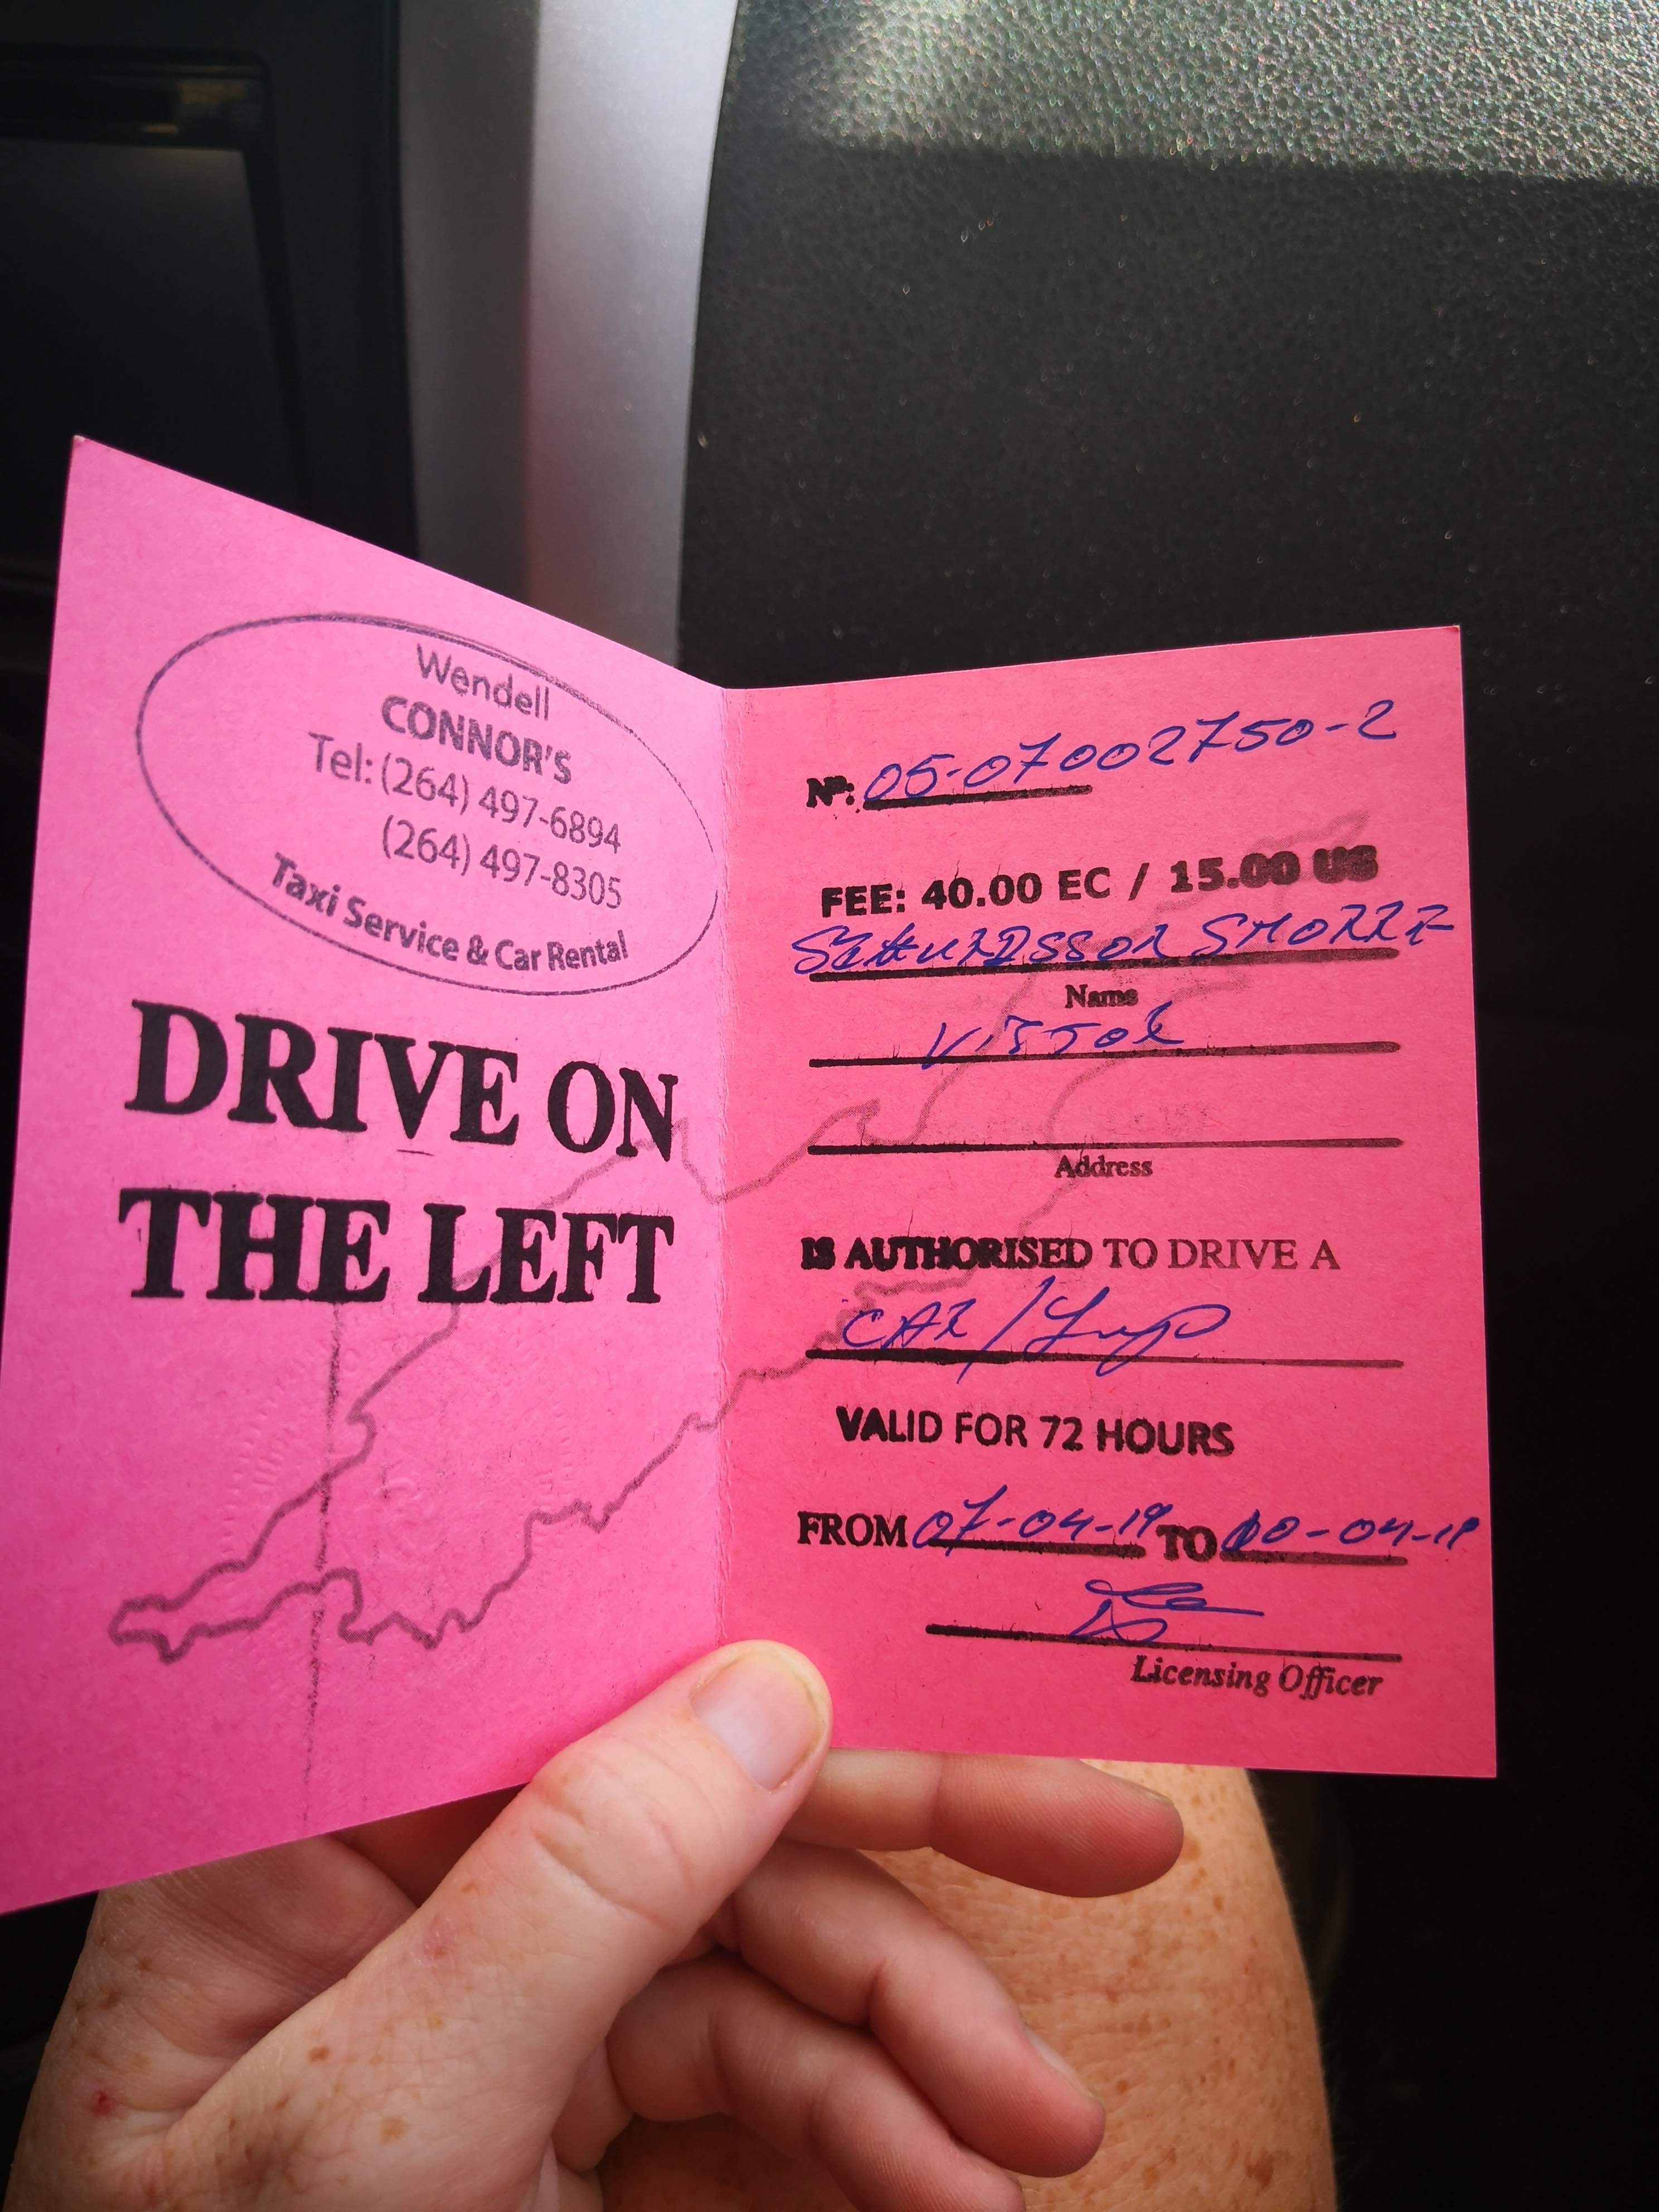 Wendell
CONNOR'S
Tel: (264) 497-6894
(264) 497-8305
Taxi Service & Car Rental
DRIVE ON
THE LEFT
Nº: 05-07002750-2
FEE: 40.00 EC / 15.00 US
Name
Address
IS AUTHORISED TO DRIVE A
CAR/Jeep
VALID FOR 72 HOURS
FROM 07-04-19 TO 10-04-19
Licensing Officer